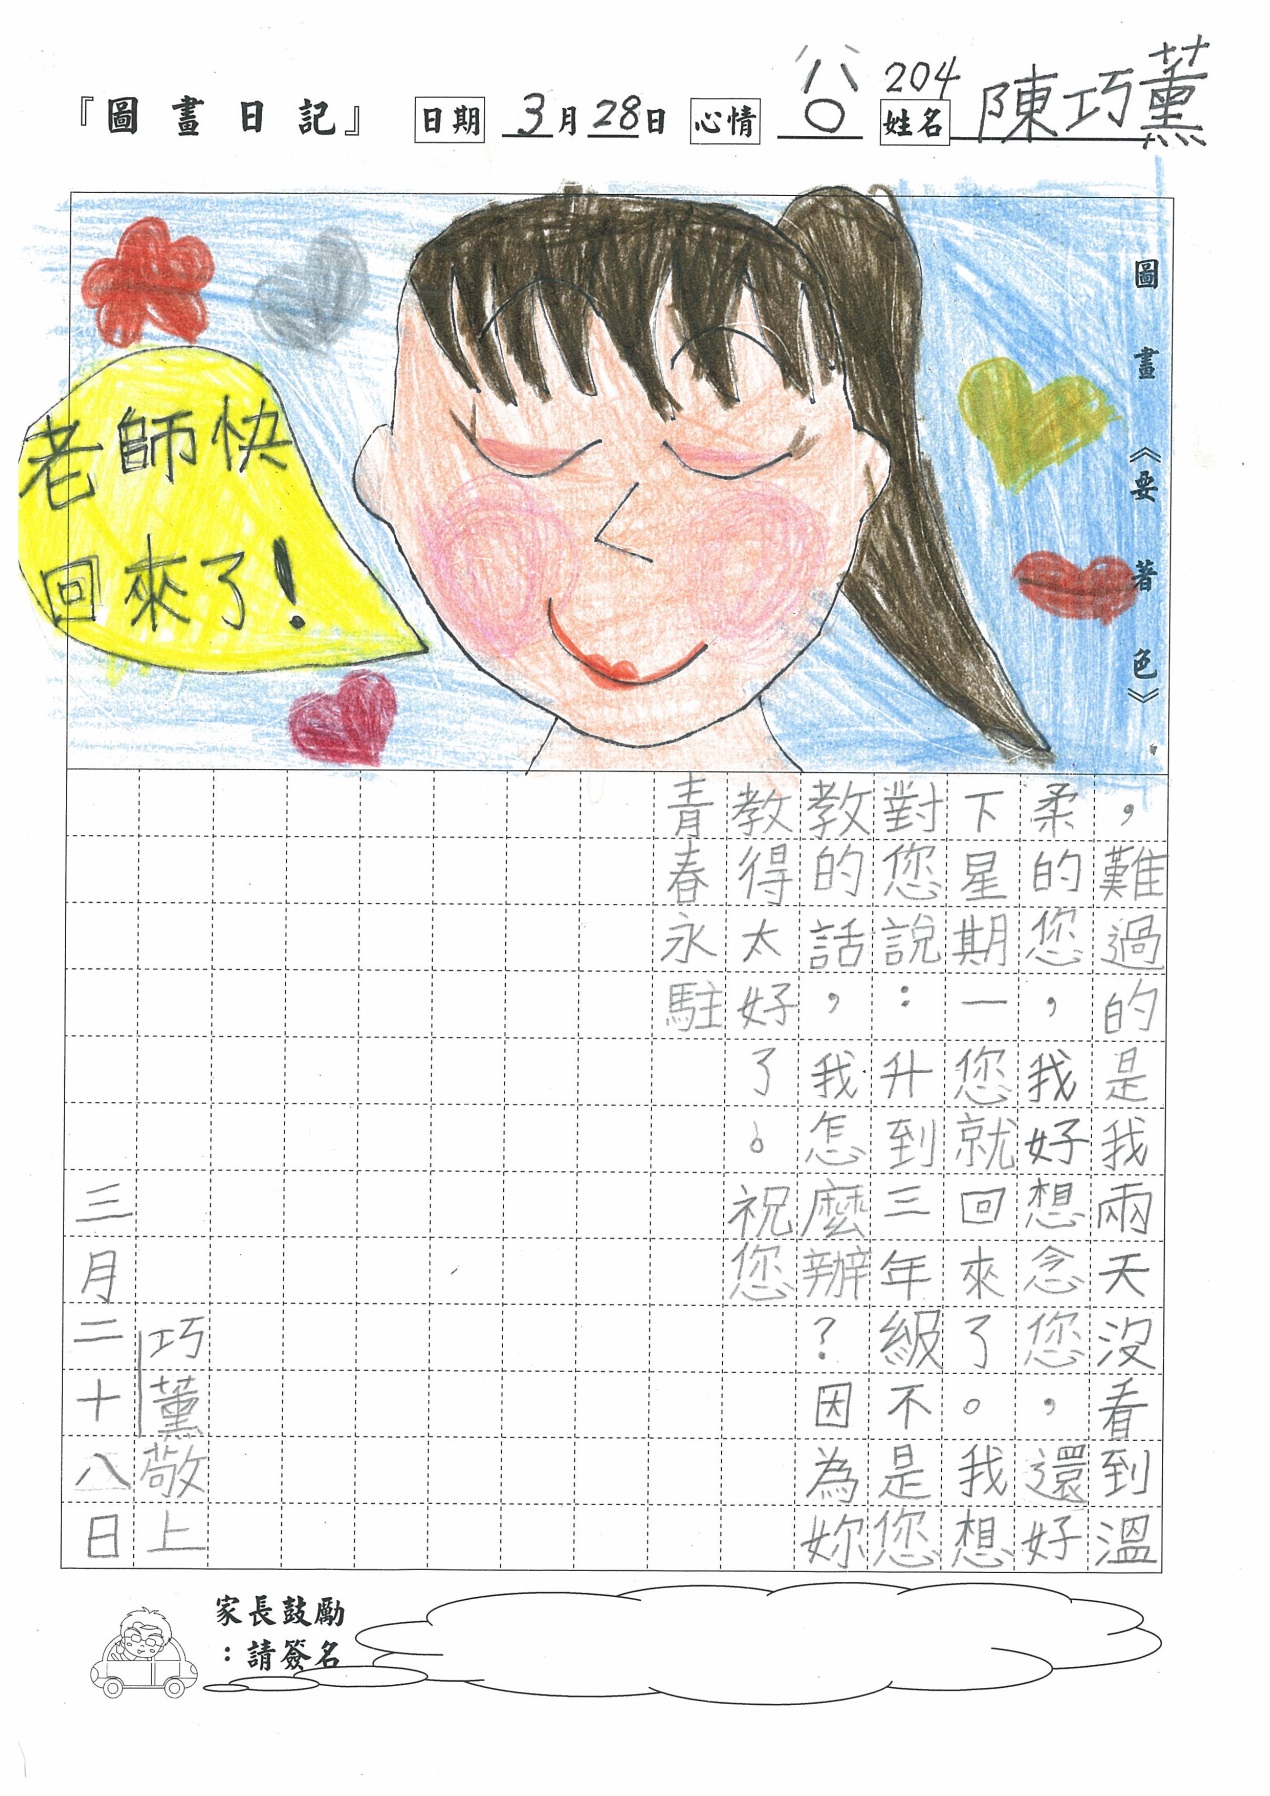 『圖畫日記』 日期 3月28日 心情 姓名 204 陳巧薰
圖畫《要著色》
老師快
回來了!
，難過的是我兩天沒看到溫
柔的您，我好想念您，還好
下星期一您就回來了。我想
對您說：升到三年級不是您
教的話，我怎麼辦？因為妳
教得太好了。祝您
青春永駐
巧薰敬上
三月二十八日
家長鼓勵
：請簽名